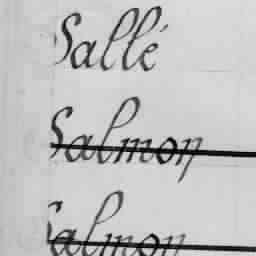 Sallé
Salmon
Salmon